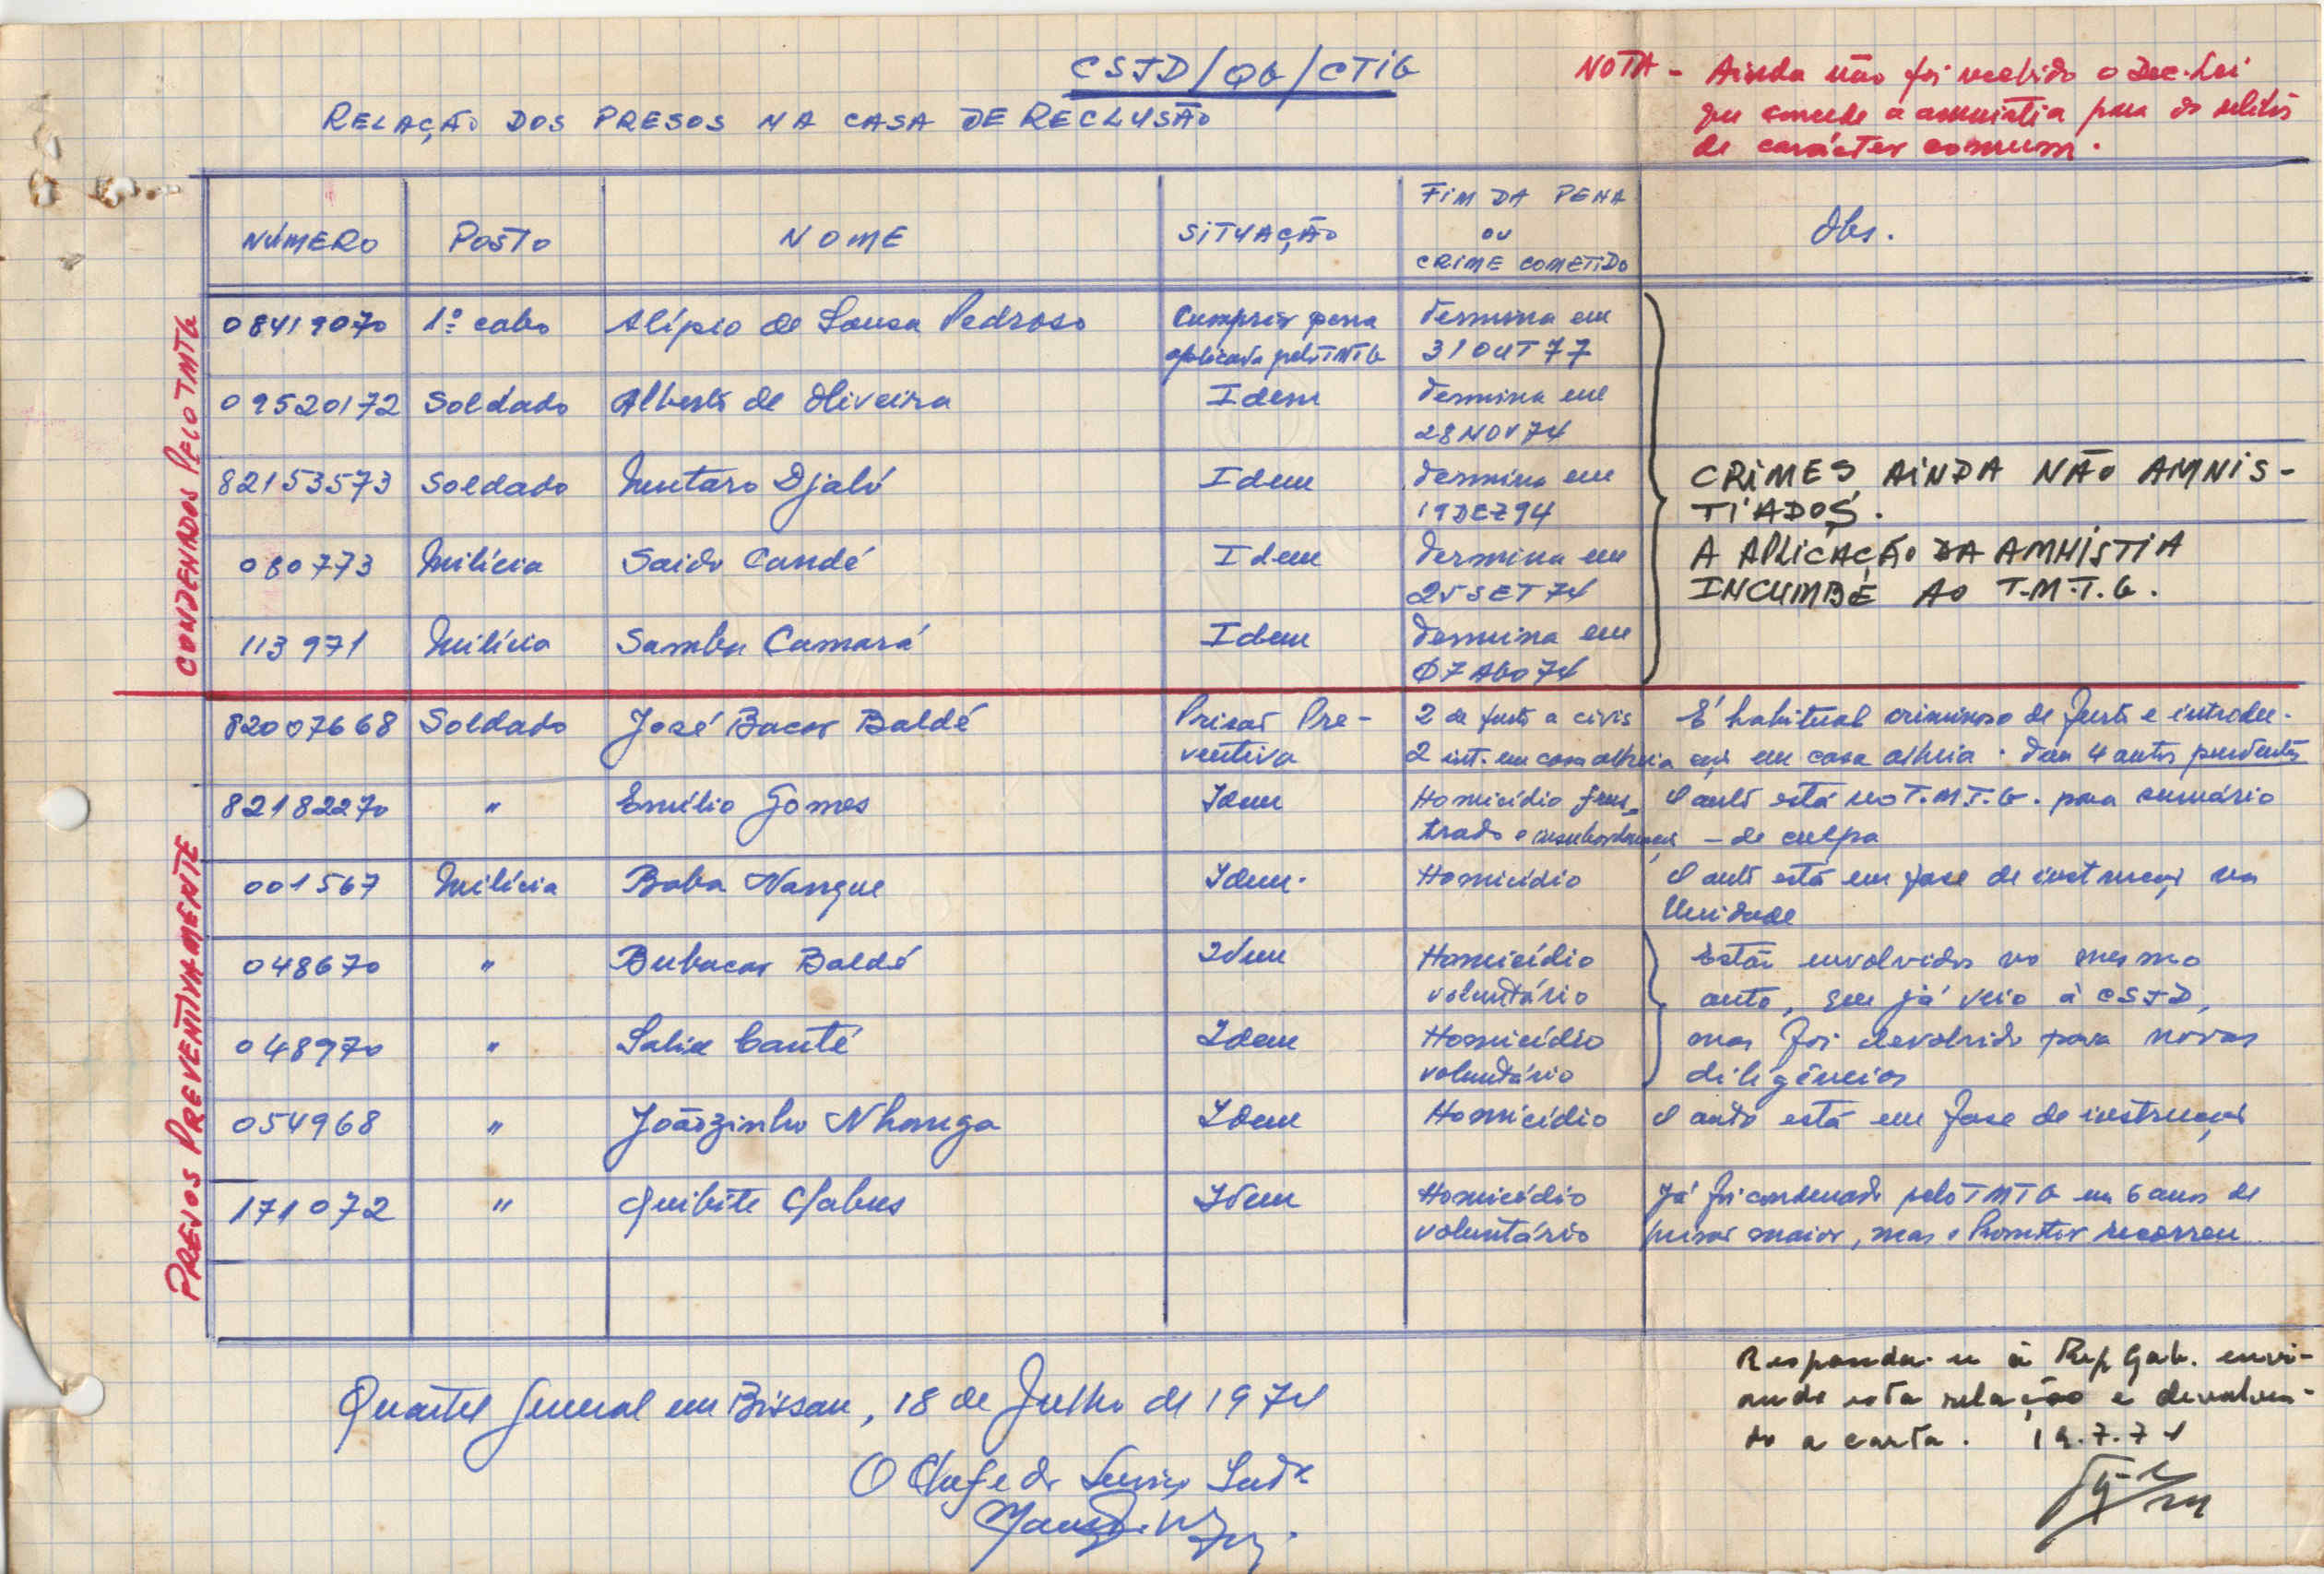 CSJD/QG/CTIG
NOTA - Ainda não foi recebido o Dec. Lei
que concede a amnistia para os delitos
de carácter comum.
RELAÇÃO DOS PRESOS NA CASA DE RECLUSÃO
NÚMERO POSTO NOME SITUAÇÃO FIM DA PENA
ou
CRIME COMETIDO Obs.
CONDENADOS PELO TMTG
08419070 1º cabo Alípio de Sousa Pedroso Cumprir pena Termina em
aplicada pelo TMTG 31 OUT 77
09520172 Soldado Alberto de Oliveira Idem Termina em
28 NOV 74
82153573 Soldado Mutaro Djaló Idem Termina em
19 DEZ 94
080773 Milícia Saido Candé Idem Termina em
25 SET 74
113971 Milícia Samba Camará Idem Termina em
07 AGO 74
CRIMES AINDA NÃO AMNIS-
TIADOS.
A APLICAÇÃO DA AMNISTIA
INCUMBE AO T.M.T.G.
PRESOS PREVENTIVAMENTE
82007668 Soldado José Bacar Baldé Prisão Pre- 2 de furto a civis É habitual criminoso de furto e introdu-
ventiva 2 int. em casa alheia ção em casa alheia. Tem 4 autos pendentes
82182270 " Emílio Gomes Idem Homicídio frus- O auto está no T.M.T.G. para sumário
trado e insubordinação - de culpa
001567 Milícia Baba Nangue Idem. Homicídio O auto está em fase de instrução na
Unidade
048670 " Bubacar Baldé Idem Homicídio
voluntário
048970 " Homicídio
Idem voluntário
Estão envolvidos no mesmo
auto, que já veio à CSJD,
mas foi devolvido para novas
diligências
054968 " Joãozinho Nhanga Idem Homicídio O auto está em fase de instrução
171072 " Idem Homicídio Já foi condenado pelo TMTG em 6 anos de
voluntário prisão maior, mas o Promotor recorreu
Quartel General em Bissau, 18 de Julho de 1974
O Chefe do Serviço
Responda-se à Rep Gab. envi-
ando esta relação e devolven-
do a carta. 19.7.74